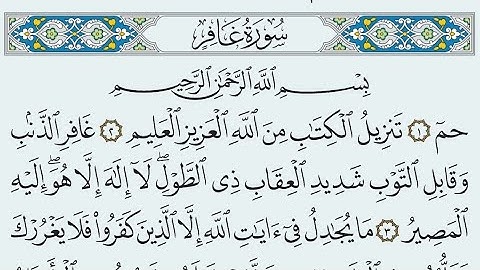 سُورَةُ غَافِرٍ
بِسْمِ اللَّهِ الرَّحْمَٰنِ الرَّحِيمِ
حمٓ ١ تَنزِيلُ الْكِتَابِ مِنَ اللَّهِ الْعَزِيزِ الْعَلِيمِ ٢ غَافِرِ الذَّنبِ
وَقَابِلِ التَّوْبِ شَدِيدِ الْعِقَابِ ذِي الطَّوْلِ ۖ لَا إِلَٰهَ إِلَّا هُوَ ۖ إِلَيْهِ
الْمَصِيرُ ٣ مَا يُجَادِلُ فِي ءَايَاتِ اللَّهِ إِلَّا الَّذِينَ كَفَرُوا فَلَا يَغْرُرْكَ